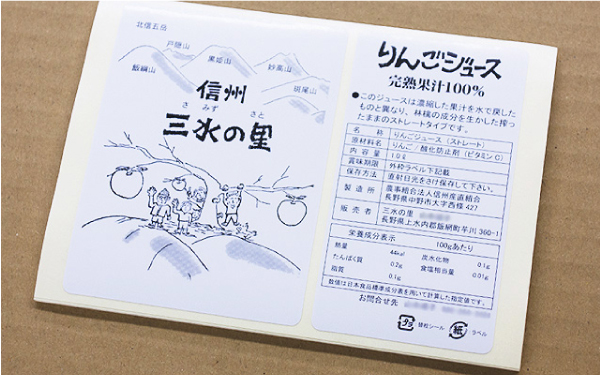 北信五岳
戸隠山
黒姫山
妙高山
飯綱山
斑尾山
信州
さみず さと
三水の里
りんごジュース
完熟果汁100%
●このジュースは濃縮した果汁を水で戻した
ものと異なり、林檎の成分を生かした搾っ
たままのストレートタイプです。
名 称 りんごジュース(ストレート)
原材料名 りんご/酸化防止剤(ビタミンC)
内 容 量 1.0ℓ
賞味期限 外枠ラベル下記載
保存方法 直射日光をさけ保存して下さい。
製 造 所 農事組合法人信州産直組合
長野県中野市大字西條427
販 売 者 三水の里
長野県上水内郡飯綱町芋川366-1
栄養成分表示 100gあたり
熱量 44kcal 炭水化物
たんぱく質 0.2g 食塩相当量 0.01g
脂質 0.1g
数値は日本食品標準成分表を用いて計算した推定値です。
お問合せ先
プラ 替栓シール 紙 ラベル